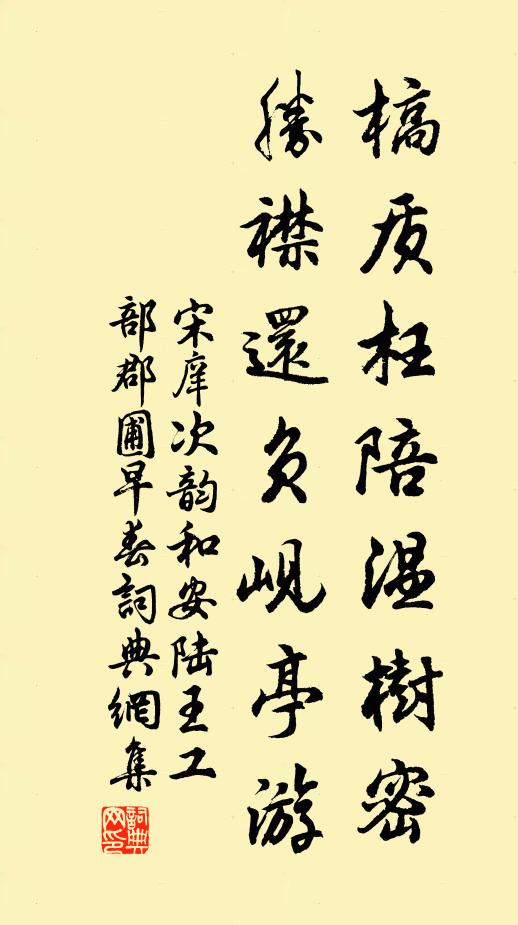 槁质枉陪温樹密
勝襟還负岘亭游
宋庠次韵和安陆王工
部郡圃早春詞典網集
詞典網印